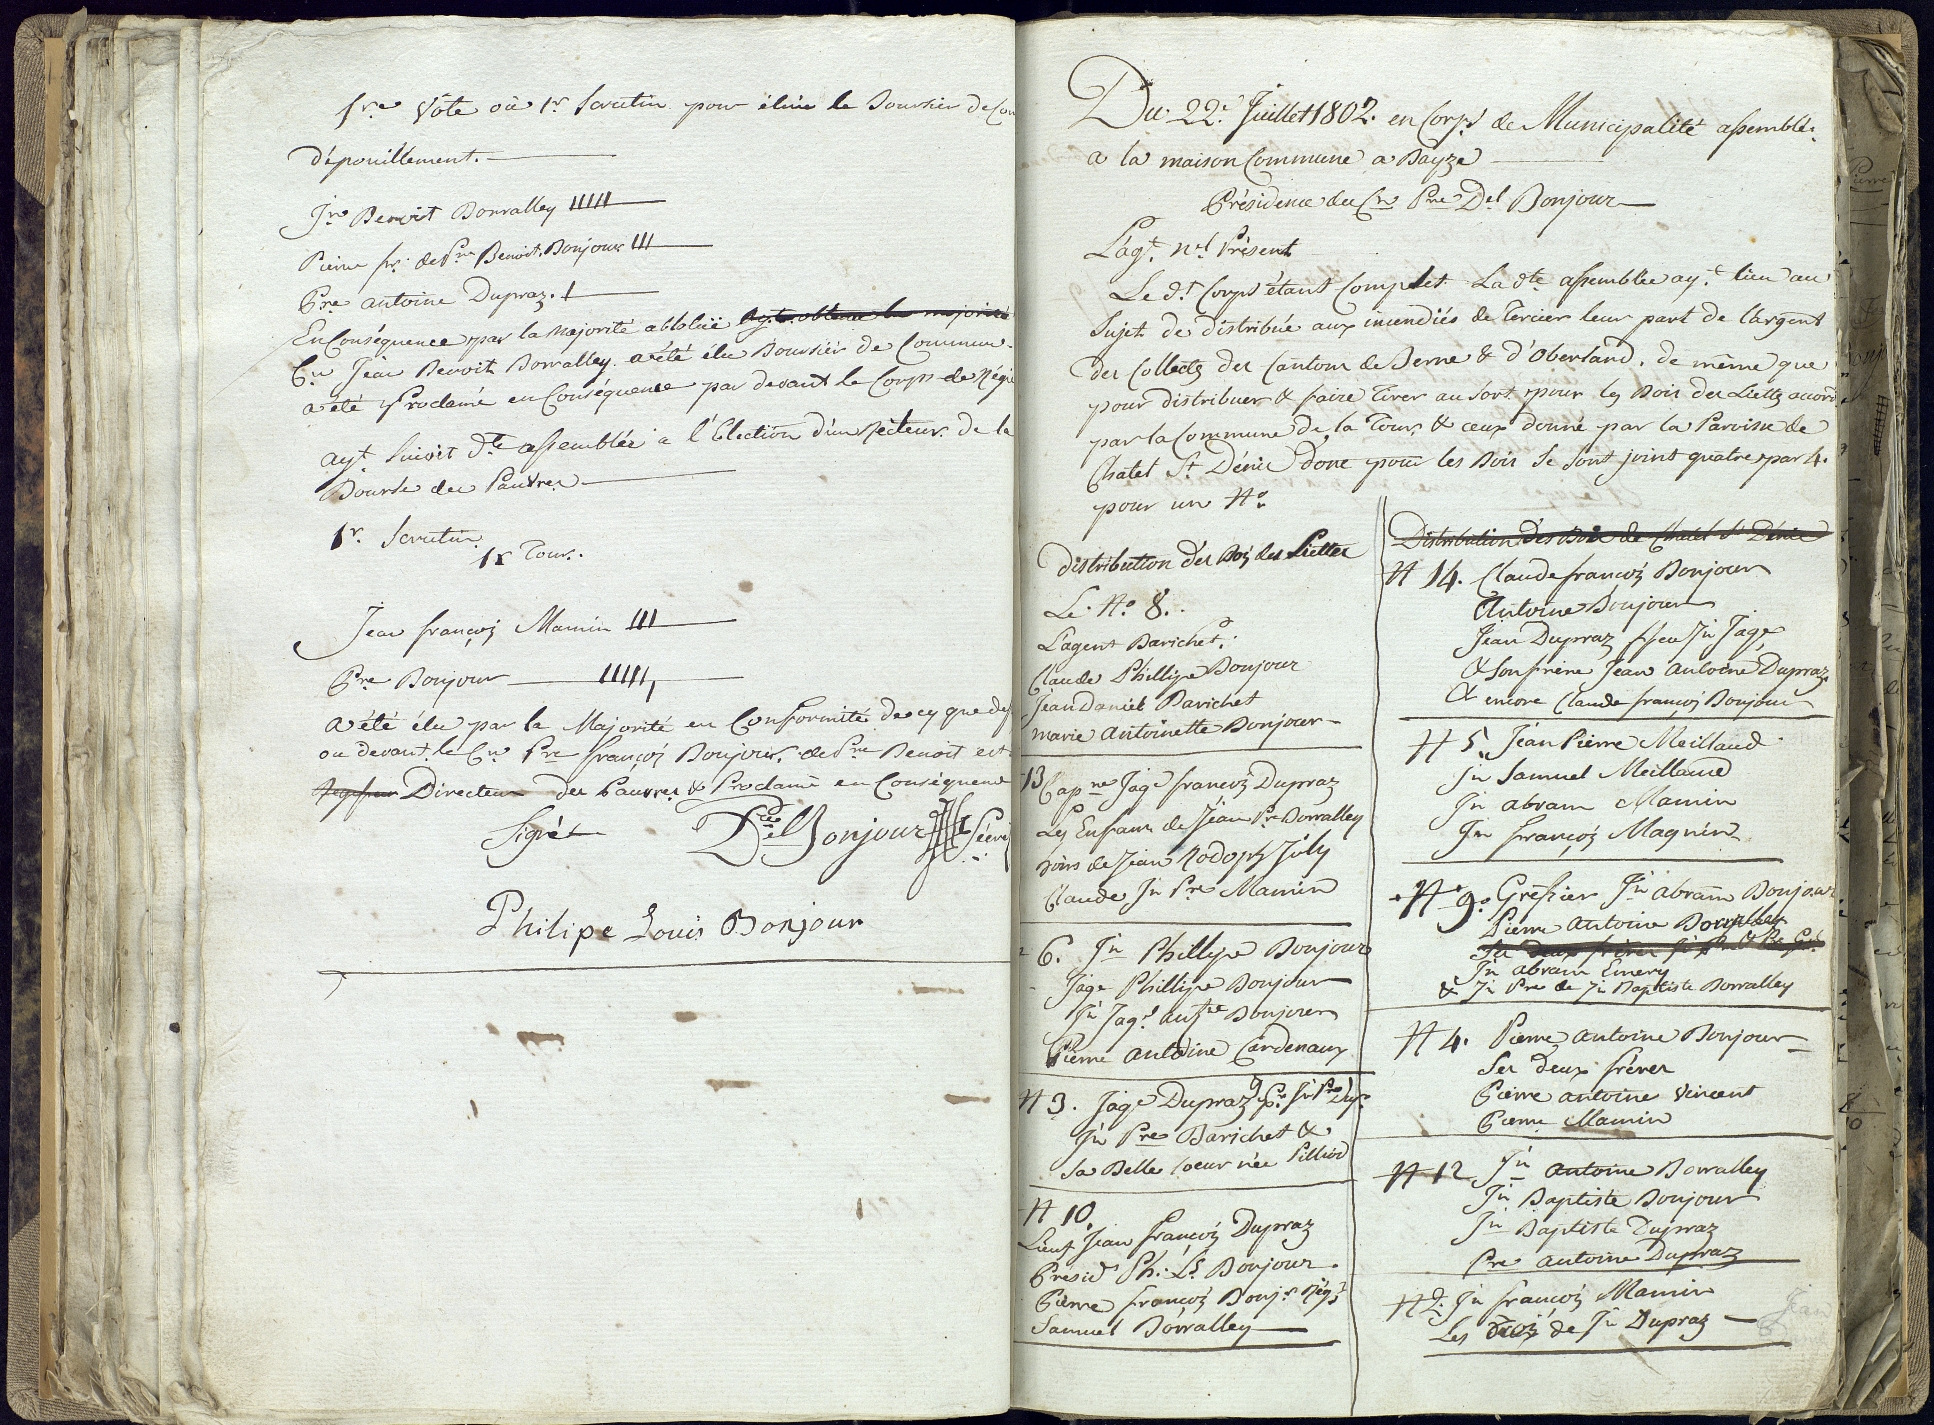 1re Vôte où 1r Scrutin pour élire le Boursier de Com
dépouillement.
Jn Benoit Borralley IIIII
Pierre fs. de Pre Benoit Bonjour III
Pre antoine Dupraz. I
En Conséquence par la Majorité absolüe ayt. obtenu la majorité
Cn Jean Benoit Borralley a été élu Boursier de Commune.
a été Proclamé en Conséquence par devant le Corps de Régie
ayt. suivit dte assemblée a l'Election d'un Recteur de la
Bourse des Pauvres
1r. Scrutin
1r Tour.
Jean françois Mamin III
Pre Bonjour IIIII,
a été élu par la Majorité en Conformité de cy que des
ou devant le Cn Pre françois Bonjour de Pre Benoit est
Directeur des Pauvres & Proclamé en Conséquence
Signé Pre Dl Bonjour Secré
Philipe Louis Bonjour
Du 22e. Juillet 1802. en Corps de Municipalité assemblé.
a la maison Commune a Bayze
Présidence du Cn Pre Del Bonjour
L'agt. nal Présent
Le dt Corps étant Complet. La dte assemblée ayt. lieu au
Sujet de distribué aux incendiés de Tercier leur part de l'argent
des Collects des Cantons de Berne & d'Oberland. de même que
pour distribuer & faire Tirer au sort pour les Bois des Liettes accord
par la Commune de la Tour & ceux donné par la Paroisse de
Chatel St Dénis donc pour les Bois se sont joint quatre par 4.
pour un No
Distribution des Bois des Liettes
Le No 8.
L'agent Barichet.
Claude Phillipe Bonjour
Jean Daniel Barichet
marie antoinette Bonjour
13 Capne Jaqe françois Dupraz
Les Enfans de Jean Pre Borralley
hoirs de Jean Rodoph Joly
Claude Jn Pre Mamin
6. Jn Phillipe Bonjour
Jaqe Phillipe Bonjour
Jn Jaqe antne Bonjour
Pierre antoine Cardenaux
N 3. Jaqe Dupraz Jn Pre Dup
Jn Pre Barichet &
Sa Belle Soeur née Pilliod
N 10.
Lieut Jean françois Dupraz
Présidt Ph. Ls Bonjour.
Pierre françois Bonjr Régt
Samuel Borralley
Distribution des Bois de Chatel St Dénis
N 14. Claude françois Bonjour
Antoine Bonjour
Jean Dupraz ffeu Jn Jaqe
& son frère Jean antoine Dupraz
& encore Claude françois Bonjour
N 5. Jean Pierre Meillaud
Jn Samuel Meillaud
Jn abram Mamin
Jn françois Magnin
N 9. Greffier Jn abram Bonjour
Pierre antoine Borralley
Ses deux frères
Jn abram Emery
& Jn Pre de Jn Baptiste Borralley
N 4. Pierre antoine Bonjour
Ses deux frères
Pierre antoine Vincent
Pierre Mamin
N 12 Jn antoine Borralley
Jn Baptiste Bonjour
Jn Baptiste Dupraz
Pre antoine Dupraz
N 2. Jn françois Mamin
Les de Jn Dupraz
Jean